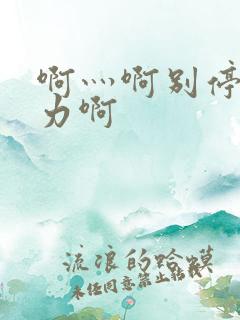 啊灬啊别停
力啊
流浪的蛤蟆
未经同意禁止转载